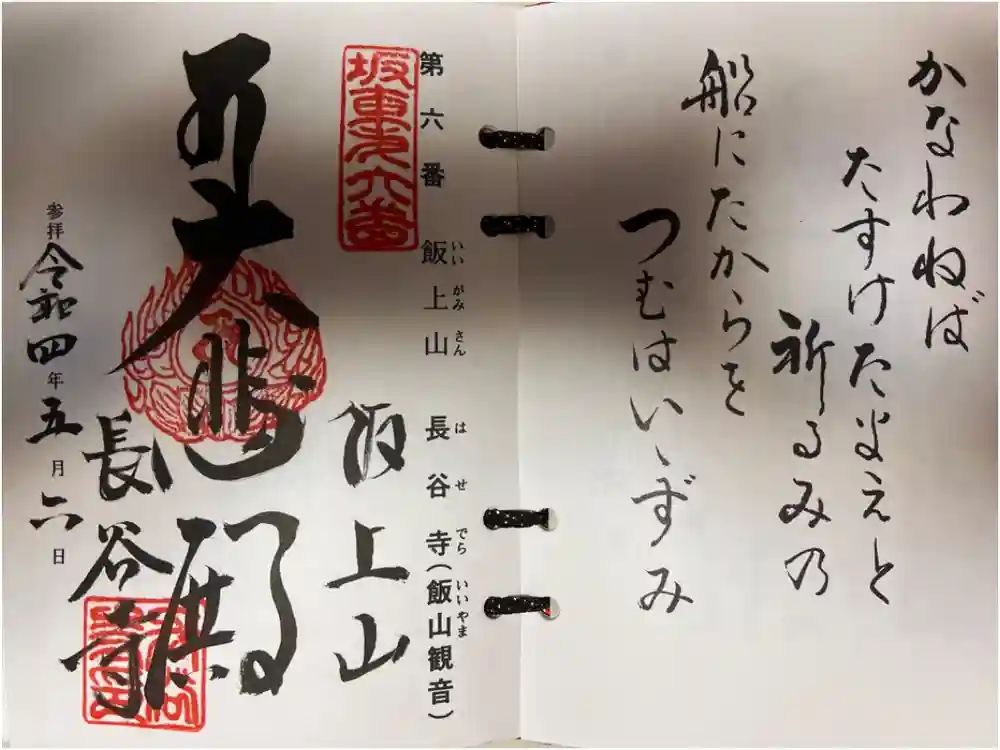 かなわねば
たすけたまえと
祈るみの
船にたからを
つむはいゝずみ
第六番 飯上山 長谷寺(飯山観音)
いいがみさん はせでら いいやま
坂東第六番
飯上山
大悲殿
長谷寺
参拝 令和四年五月六日